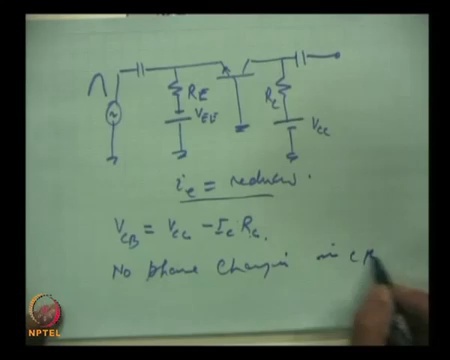 RE
VEE
RC
VCC
ie = reduces.
VCB = VCC - IC RC.
No phase Change in CB
NPTEL